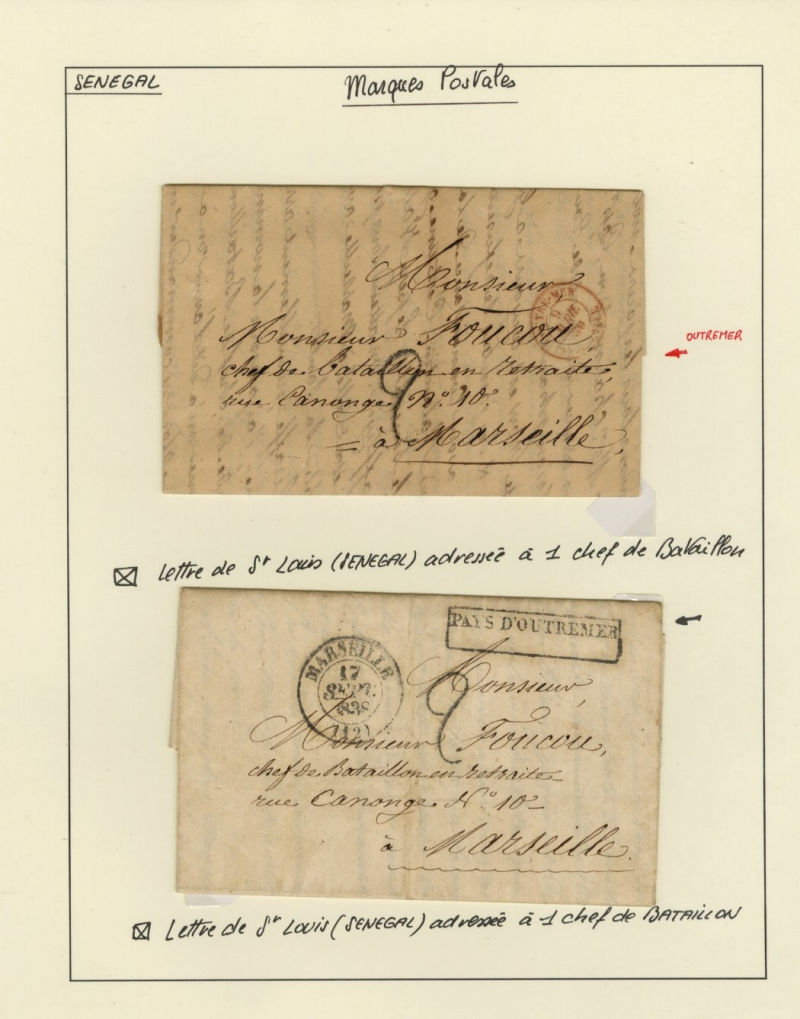 SENEGAL
Marques Postales
Monsieur,
Monsieur Foucou,
chef de bataillon en retraite,
rue Canonge N° 10.
à Marseille,
OUTREMER
Lettre de St Louis (SENEGAL) adressée à 1 chef de Bataillon
PAYS D'OUTREMER
MARSEILLE
17
SEPT.
1838
(12)
Monsieur,
Monsieur Foucou,
chef de Bataillon en retraite
rue Canonge N° 10
à Marseille.
Lettre de St Louis (SENEGAL) adressée à 1 chef de BATAILLON